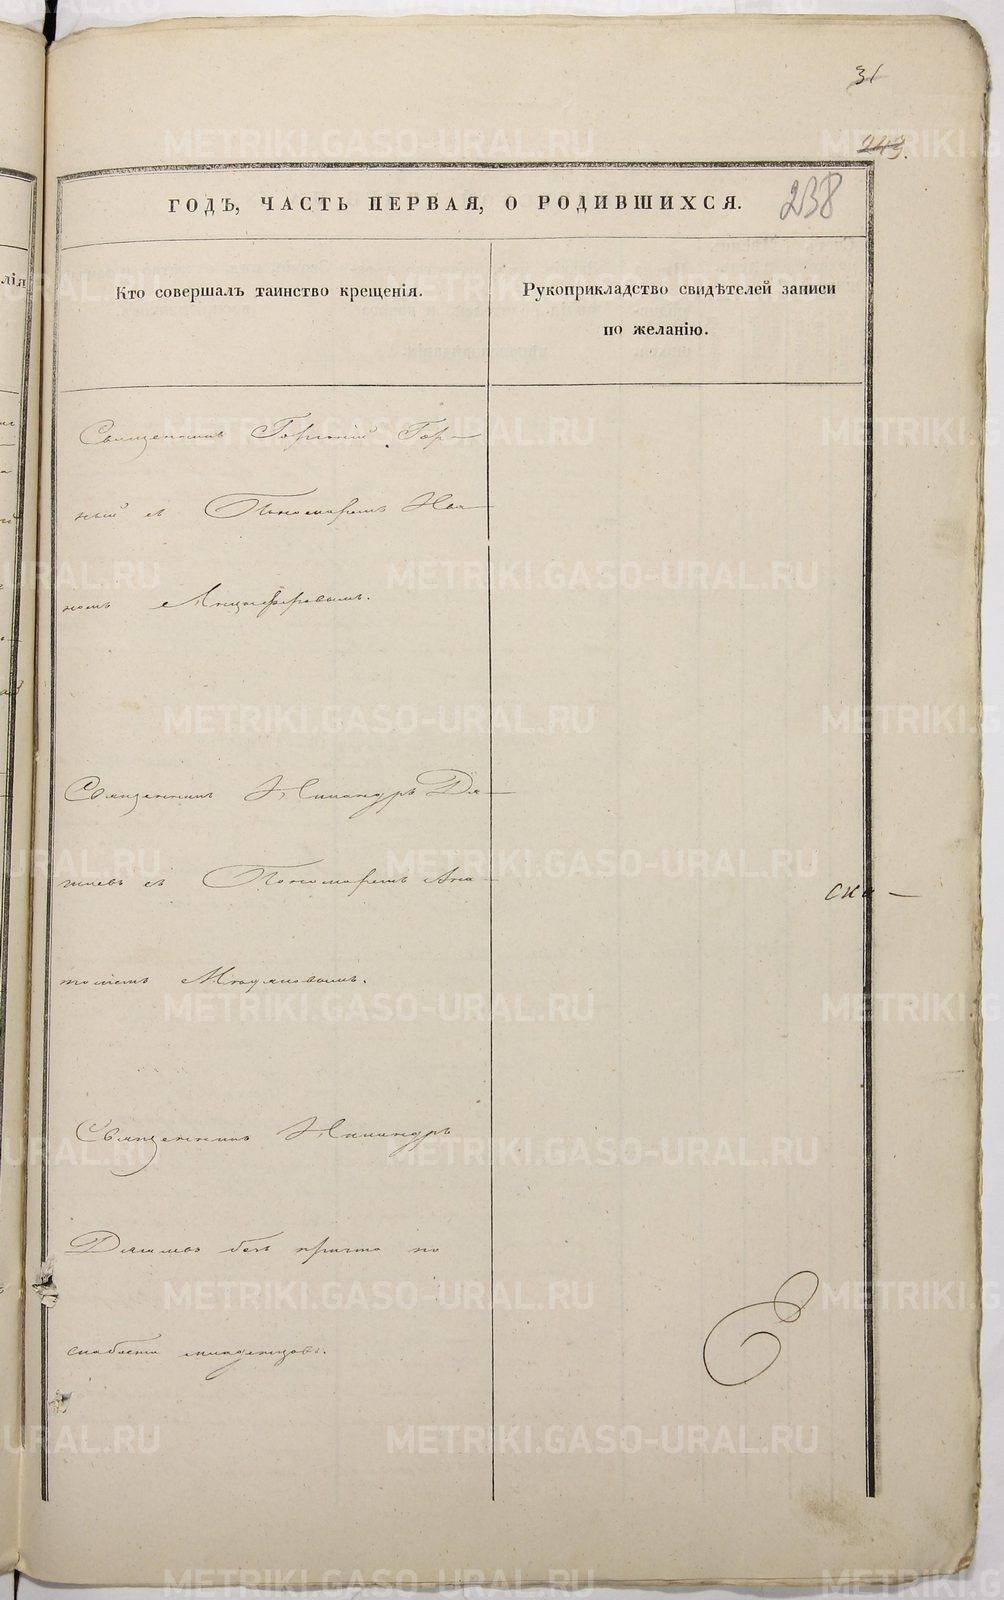 31
243.
238
ГОДЪ, ЧАСТЬ ПЕРВАЯ, О РОДИВШИХСЯ.
Кто совершалъ таинство крещенія.
Рукоприкладство свидѣтелей записи
по желанію.
Священникъ Гор-
ный съ Пономаремъ Ива-
номъ
Священникъ Никандръ Дя-
гилевъ съ Пономаремъ Ана-
толіемъ
Священникъ Никандръ
Дягилевъ безъ причта по
слабости младенцовъ.
ска-
METRIKI.GASO-URAL.RU